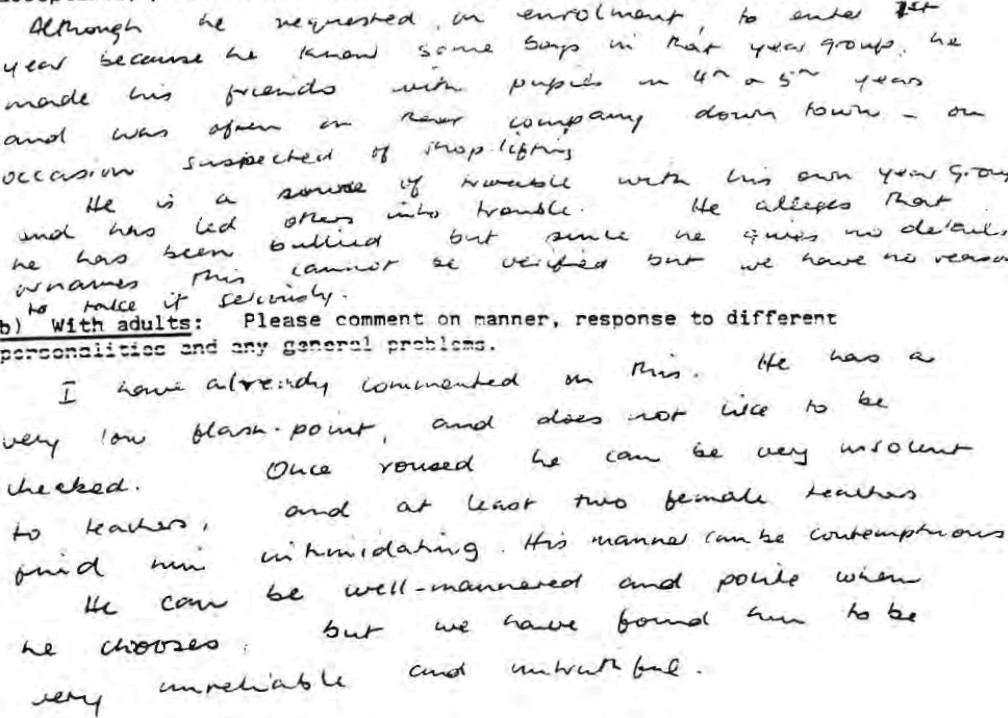 Although he requested, on enrolment, to enter 1st
year because he knew some boys in that year group, he
made his friends with pupils in 4th or 5th years
and was often in their company down town - on
occasion suspected of shop-lifting
He is a source of trouble with his own year group
and has led others into trouble. He alleges that
he has been bullied but since he gives no details
or names this cannot be verified but we have no reason
to take it seriously.
b) With adults: Please comment on manner, response to different
personalities and any general problems.
I have already commented on this. He has a
very low flash-point, and does not like to be
checked. Once roused he can be very insolent
to teachers, and at least two female teachers
find him intimidating. His manner can be contemptuous
He can be well-mannered and polite when
he chooses, but we have found him to be
very unreliable and untruthful.